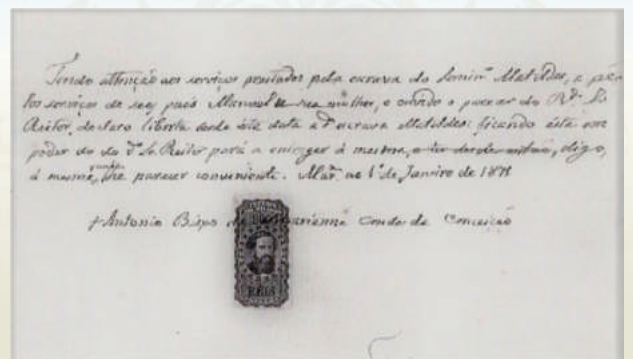 Tendo attenção aos serviços prestados pela escrava do Semin.º Matildes, e pe-
los serviços de seus pais Manoel e sua mulher, e ouvido o parecer do R.do Sr.
Reitor, declaro liberta desde esta data a d.ª escrava Matildes: ficando esta em
poder do do d.º Sr. Reitor para a entregar á mesma, digo,
á mesma, quando lhe parecer conveniente. Mar.na ao 1.º de Janeiro de
+ Antonio Bispo de Marianna Conde da Conceição
REIS